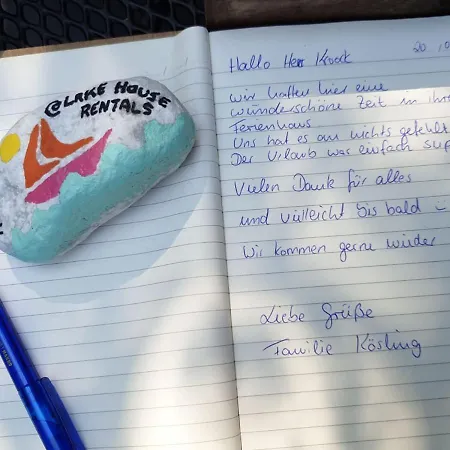 @LAKE HOUSE
RENTALS
Hallo Herr
20.10
wir hatten hier eine
wunderschöne Zeit in Ihr
Ferienhaus
Uns hat es an nichts gefehlt
Der Urlaub war einfach sup
Vielen Dank für alles
und vielleicht bis bald –
Wir kommen gerne wieder
Liebe Grüße
Familie Kösling